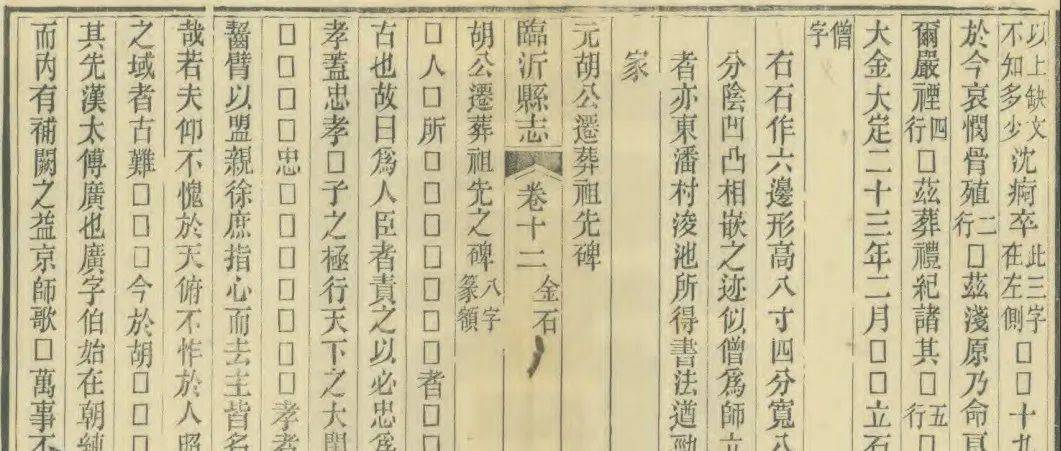 以上缺文
不知多少沈痾卒此三字
在左側□□十九
於今哀憫骨殖二
行□茲淺原乃命
爾嚴禋四
行□茲葬禮紀諸其□五
行
大金大定二十三年二月□□立石
僧
字
右石作六邊形高八寸四分寬八
分陰凹凸相嵌之迹似僧爲師立
者亦東潘村浚池所得書法遒勁
家
元胡公遷葬祖先碑
臨沂縣志 卷十二 金石
胡公遷葬祖先之碑八字
篆額
□人□所□□□□□□者□□
古也故曰爲人臣者責之以必忠爲
孝蓋忠孝□子之極行天下之大閑
□□□□忠□□□□□□孝者
齧臂以盟親徐庶指心而去主皆名
哉若夫仰不愧於天俯不怍於人照
之域者古難□□□今於胡□□□
其先漢太傅廣也廣字伯始在朝純
而內有補闕之益京師歌□萬事不